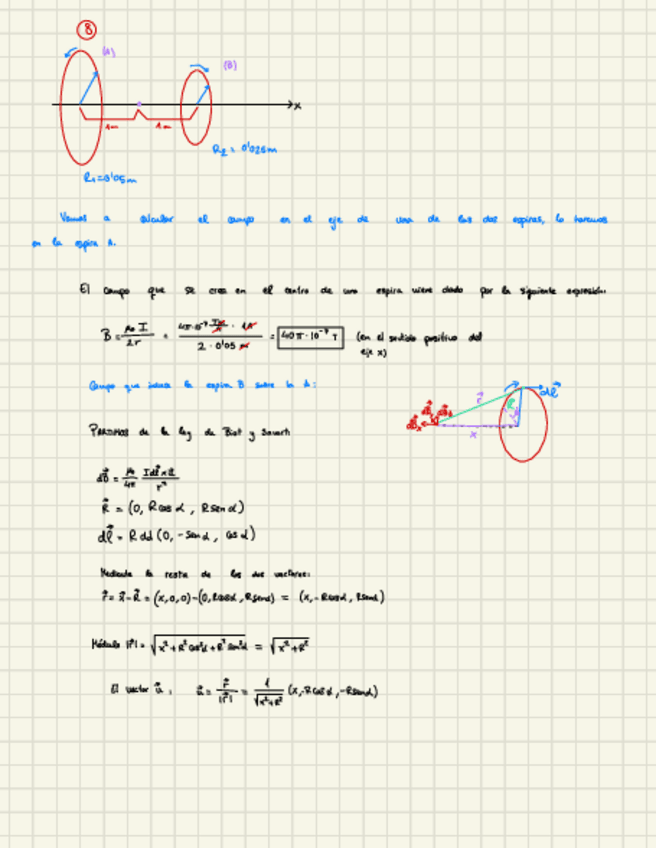 8
(A)
(B)
x
1m 1m
R₂ = 0'025m
R₁=0'05m
Vamos a calcular el campo en el eje de una de las dos espiras, lo haremos
en la espira A.
El campo que se crea en el centro de una espira viene dado por la siguiente expresión:
B = μ₀ I / 2r = 4π·10⁻⁷ · 1A / 2 · 0'05 m = 40π·10⁻⁷ T (en el sentido positivo del
eje x)
Campo que induce la espira B sobre la A:
Partimos de la ley de Biot y Savart
dB⃗ = μ₀/4π I dl⃗ x u⃗ / r²
R⃗ = (0, R cos α, R sen α)
dl⃗ = R dα (0, -sen α, cos α)
Mediante la resta de los dos vectores:
r⃗ = x⃗ - R⃗ = (x,0,0)-(0, R cos α, R sen α) = (x, -R cos α, R sen α)
Módulo |r⃗| = √x² + R² cos²α + R² sen²α = √x² + R²
El vector u⃗ : u⃗ = r⃗/|r⃗| = 1/√x²+R² (x, -R cos α, -R sen α)
r⃗
R⃗
dl⃗
x